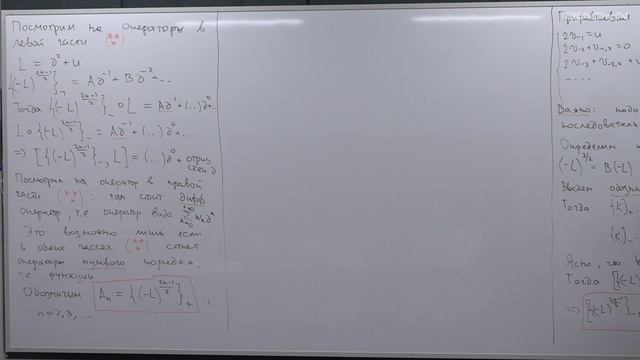 Посмотрим на операторы в
левой части (**)
L = ∂² + u
{(-L)^{\frac{2n-1}{2}}}_- = A∂^{-1} + B∂^{-2} + ...
Тогда {(-L)^{\frac{2n-1}{2}}}_- ∘ L = A∂^1 + (...)∂^0 + ...
L ∘ {(-L)^{\frac{2n-1}{2}}}_- = A∂^1 + (...)∂^0 + ...
⇒ [{(-L)^{\frac{2n-1}{2}}}_-, L] = (...)∂^0 + отриц
степ. ∂
Посмотрим на оператор в правой
части (**) : там стоит дифф
оператор, т.е. оператор вида
Это возможно лишь если
в обеих частях (**) стоят
операторы нулевого порядка,
т.е. функции
Обозначим A_n := {(-L)^{\frac{2n-1}{2}}}_+ ,
n = 2,3,...
Приравнивая
2v_{-1} = u
2v_{-2} + v_{-1,x} = 0
2v_{-3} + v_{-2,x} +
....
Важно:
последователь
Определим
(-L)^{3/2} = B(-L)
Введем обозна
Тогда {K}_+ :
{K}_- :
Ясно, что
Тогда [{(-L)
⇒ [{(-L)^{\frac{2n-1}{2}}}_-,